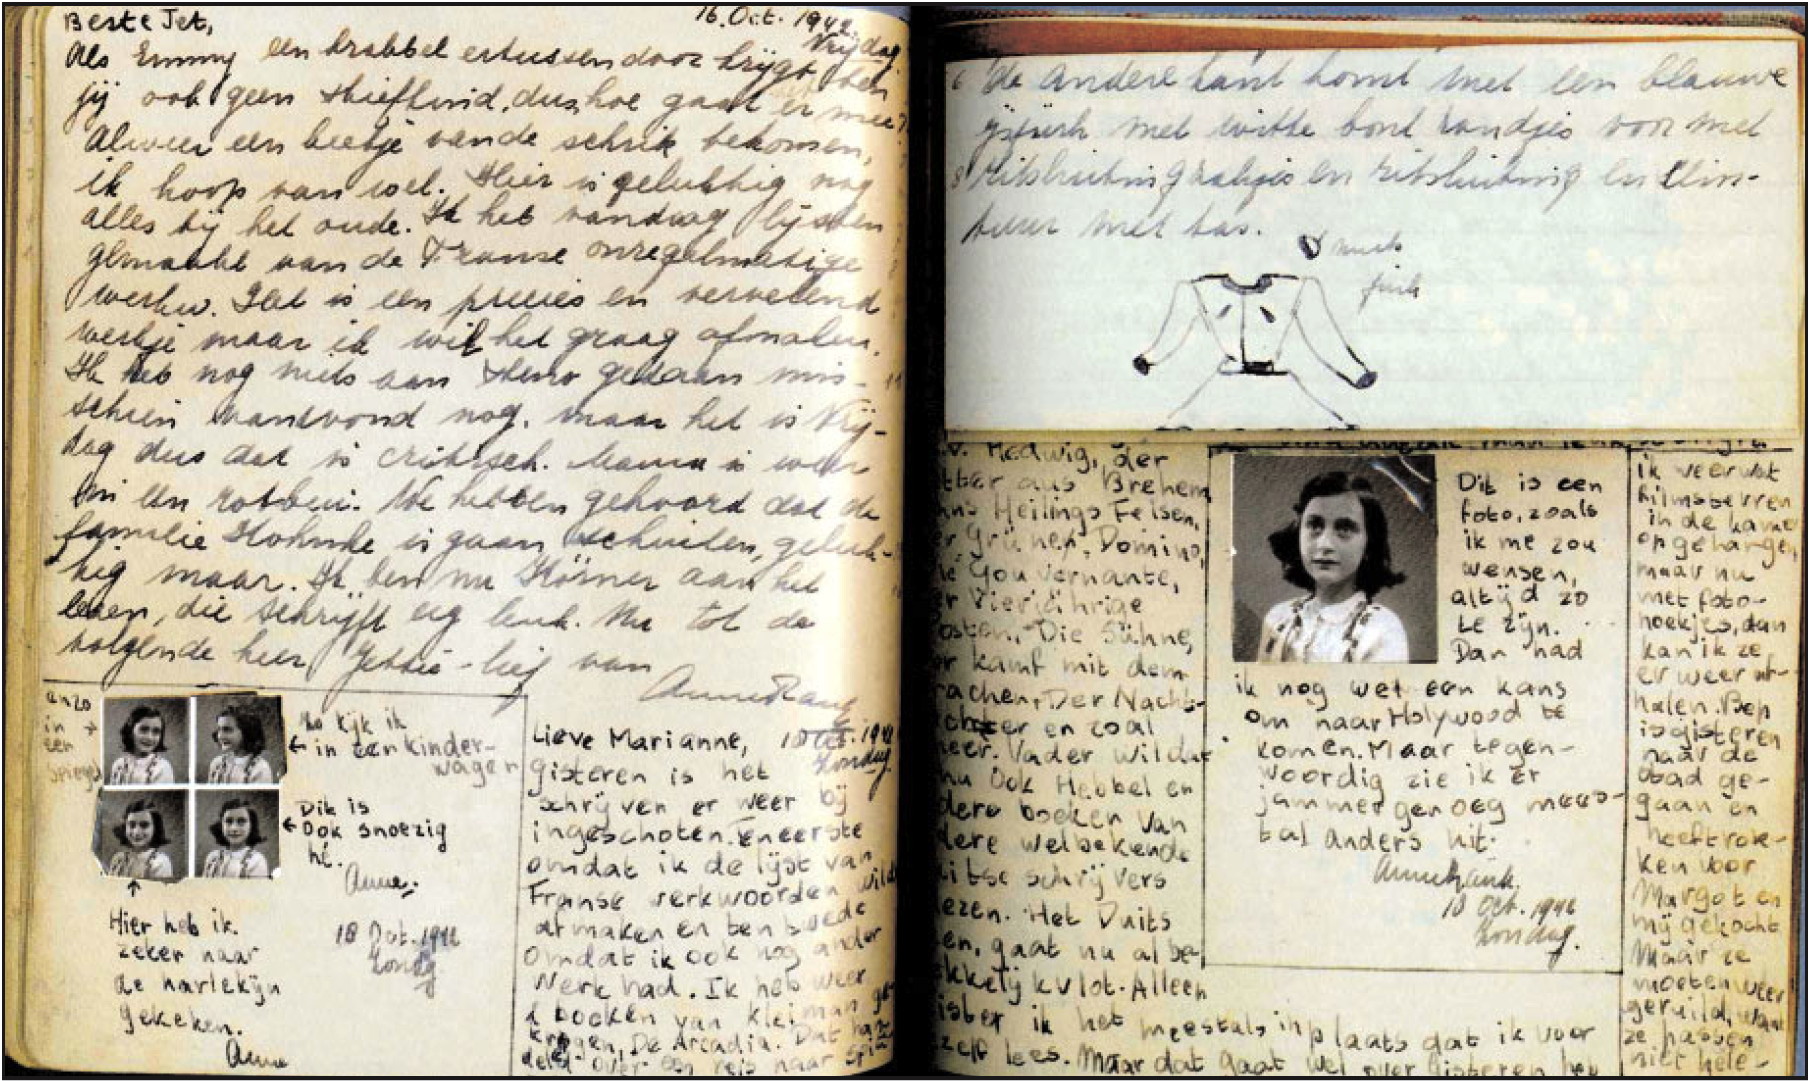 Beste Jet,
16. Oct. 1942.
Vrijdag.
Als Emmy een krabbel ertussendoor krijgt ben
jij ook geen stiefkind, dus hoe gaat er mee?
Alweer een beetje van de schrik bekomen,
ik hoop van wel. Hier is gelukkig nog
alles bij het oude. Ik heb vandaag lijsten
gemaakt van de Franse onregelmatige
werkw. Het is een precies en vervelend
werkje maar ik wil het graag afmaken.
Ik heb nog niets aan Steno gedaan mis-
schien vanavond nog, maar het is Vrij-
dag dus dat is critisch. Mama is weer
in een rotbui. We hebben gehoord dat de
familie is gaan schuilen, geluk-
kig maar. Ik ben nu Körner aan het
lezen, die schrijft erg leuk. Nu tot de
volgende keer Jettie-lief van
Anne Frank
en zo
in →
een
spiegel
Zo kijk ik
← in een kinder-
wagen
Dit is
← Ook snoezig
hé.
Anne.
↑
Hier heb ik
zeker naar
de harlekijn
gekeken.
Anne
18 Oct. 1942
Zondag
Lieve Marianne,
18 Oct. 1942
Zondag
Gisteren is het
schrijven er weer bij
ingeschoten. Teneerste
omdat ik de lijst van
Franse werkwoorden wilde
afmaken en ten twede
omdat ik ook nog ander
werk had. Ik heb weer
2 boeken van Kleiman ge-
kregen, De Arcadia. Dat han-
delt over een reis naar
de andere kant komt met een blauwe
ijsjurk met witte bont randjes voor met
ritssluiting zakjes en ritssluiting en
met tas.
muts
jurk
v. Hedwig, der
tter aus Brehem
ans Heilings Felsen,
er Grüner, Domino,
ie Gouvernante,
er Vierjährige
osten, Die Sühne,
er kamf mit dem
rachen, Der Nacht-
chter en zoal
meer. Vader wil dat
nu ook Hebbel en
dere boeken van
dere welbekende
itse schrijvers
lezen. Het Duits
en, gaat nu al be-
kkelijk vlot. Alleen
ister ik het meestal inplaats dat ik voor
zelf lees. Maar dat gaat wel over Gisteren heb
Dit is een
foto, zoals
ik me zou
wensen,
altijd zo
te zijn.
Dan had
ik nog wel een kans
om naar Holywood te
komen. Maar tegen-
woordig zie ik er
jammer genoeg mees-
tal anders uit.
Anne Frank
18 Oct. 1942
Zondag.
ik weer wat
filmsterren
in de kamer
opgehangen,
maar nu
met foto-
hoekjes, dan
kan ik ze
er weer uit-
halen. Bep
is gisteren
naar de
stad ge-
gaan en
heeft rok-
ken voor
Margot en
mij gekocht
Maar ze
moeten weer
geruild, want
ze passen
niet hele-